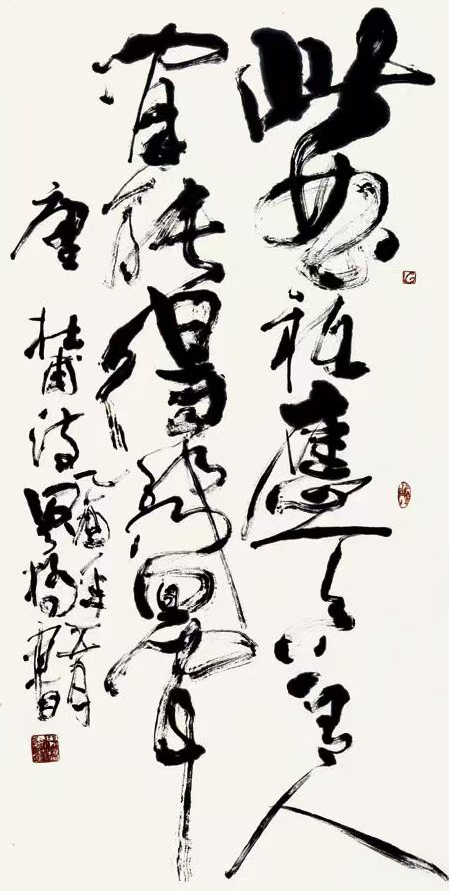 此曲祇應天上有人
間能得幾回聞
唐
杜甫詩
乙酉年五月